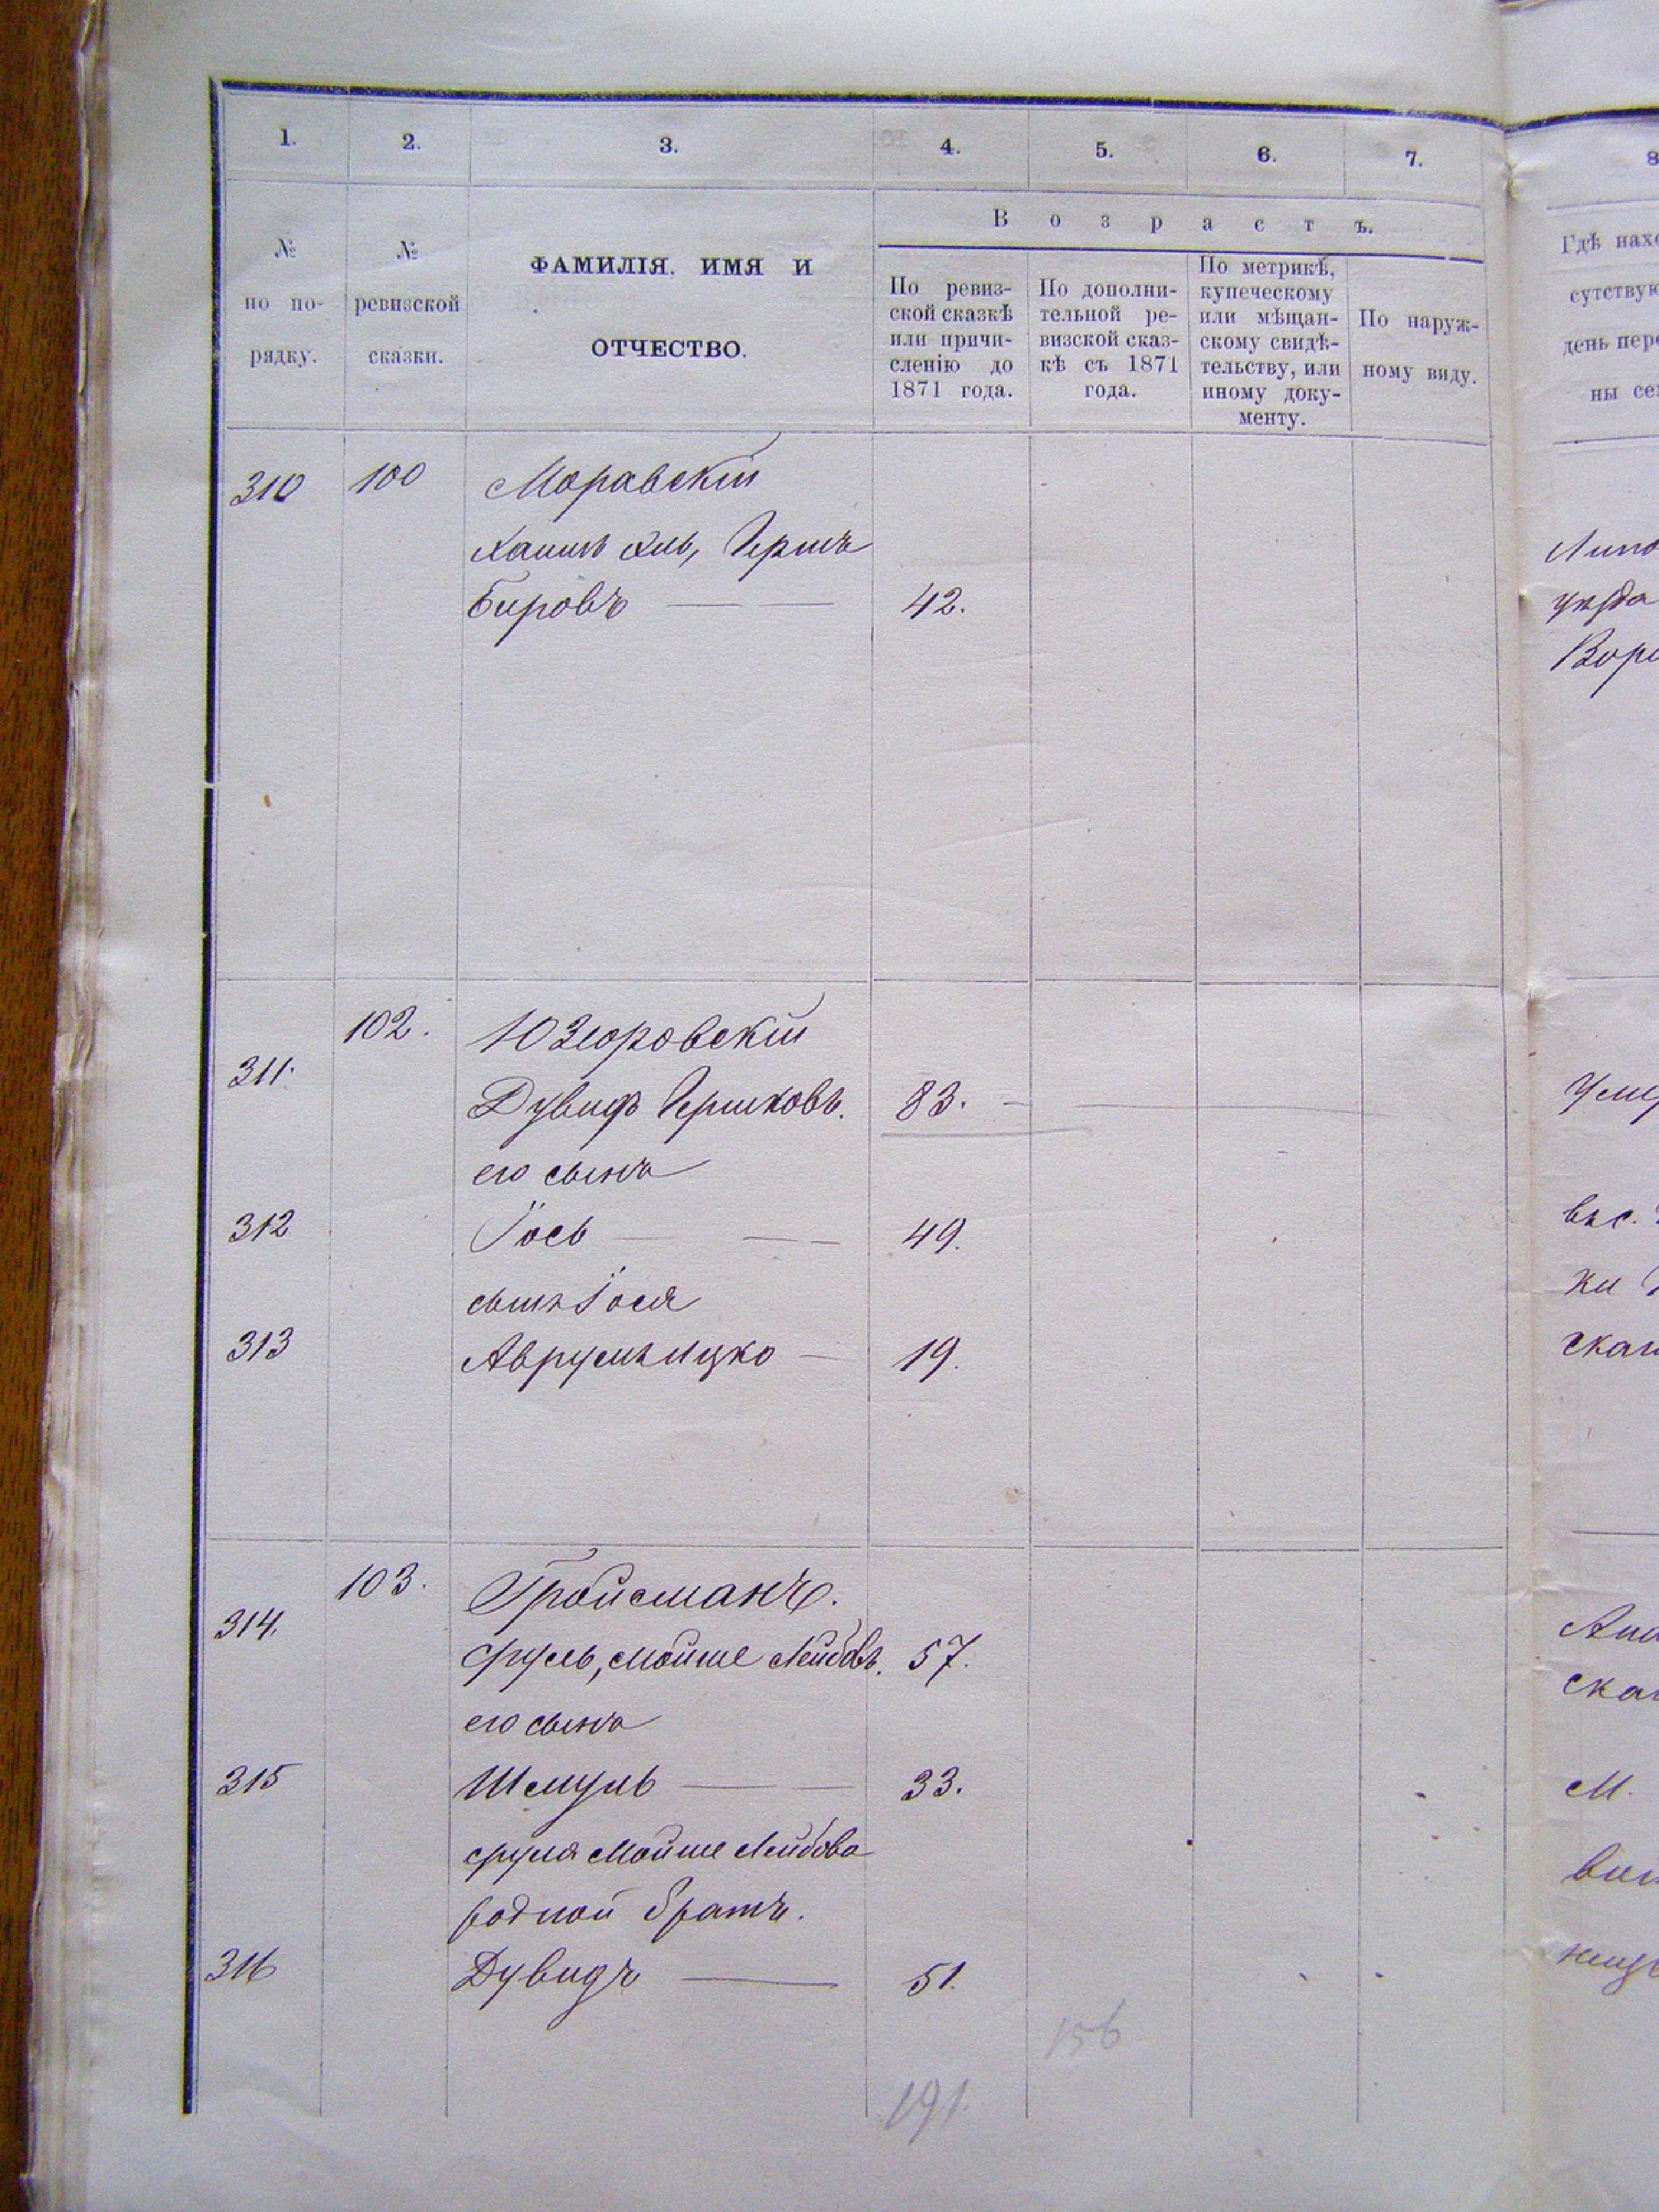 1. 2. 3. 4. 5. 6. 7. 8
№ по по- рядку.
№ ревизской сказки.
ФАМИЛІЯ, ИМЯ И ОТЧЕСТВО.
Возрастъ.
По ревиз-
ской сказкѣ
или причи-
сленію до
1871 года.
По дополни-
тельной ре-
визской сказ-
кѣ съ 1871
года.
По метрикѣ,
купеческому
или мѣщан-
скому свидѣ-
тельству, или
иному доку-
менту.
По наруж-
ному виду.
Гдѣ нахо
сутствую
день пере
ны сем
310 100 Моравскій
Герша
Беровъ 42.
102. Юзеровскій
311. Дувидъ Гершковъ. 83.
его сынъ
312 Іось 49.
сынъ Іося
313 Аврумъ Ицко 19.
103. Гройсманъ.
314. Сруль, Мойше Лейбовъ. 57.
его сынъ
315 Шмуль 33.
Сруля Мойше Лейбова
родной братъ.
316 Дувидъ 51.
156
191.